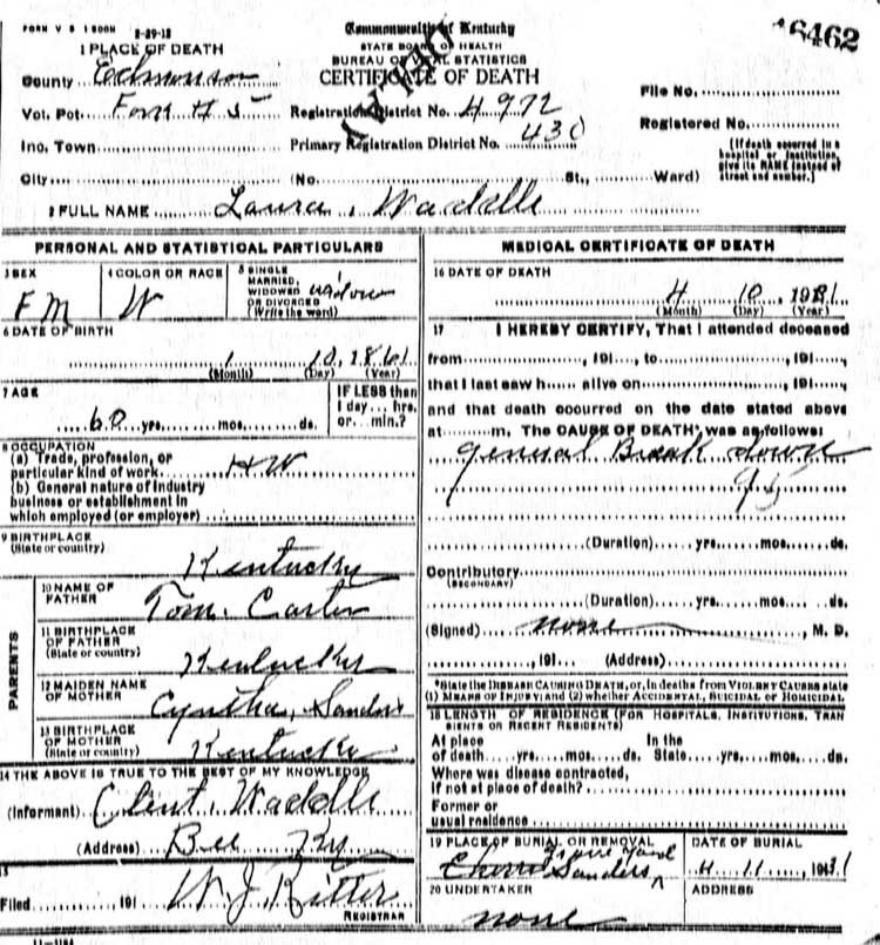 FORM V S 1 8-29-18
Commonwealth of Kentucky
STATE BOARD OF HEALTH
BUREAU OF VITAL STATISTICS
CERTIFICATE OF DEATH
16462
1 PLACE OF DEATH
County Edmonson
Vot. Pot. Registration District No. 4972
File No.
Inc. Town Primary Registration District No. 430
Registered No.
City (No. St., Ward)
[If death occurred in a
hospital or institution,
give its NAME instead of
street and number.]
2 FULL NAME Laura Waddle
PERSONAL AND STATISTICAL PARTICULARS
3 SEX
F M
4 COLOR OR RACE
W
5 SINGLE
MARRIED,
WIDOWED
OR DIVORCED
(Write the word)
widow
6 DATE OF BIRTH
1 10, 1861
(Month) (Day) (Year)
7 AGE
60 yrs. mos. ds.
IF LESS than
1 day ... hrs.
or ... min.?
8 OCCUPATION
(a) Trade, profession, or
particular kind of work HW
(b) General nature of Industry
business or establishment in
which employed (or employer)
9 BIRTHPLACE
(State or country)
Kentucky
PARENTS
10 NAME OF
FATHER
Tom. Carter
11 BIRTHPLACE
OF FATHER
(State or country)
Kentucky
12 MAIDEN NAME
OF MOTHER
Cyntha, Sanders
13 BIRTHPLACE
OF MOTHER
(State or country)
Kentucky
14 THE ABOVE IS TRUE TO THE BEST OF MY KNOWLEDGE
(Informant) Clint. Waddle
(Address) Bee Ky
15
Filed , 191 W. J. Ritter
REGISTRAR
11-1184
MEDICAL CERTIFICATE OF DEATH
16 DATE OF DEATH
4 10, 1921
(Month) (Day) (Year)
17 I HEREBY CERTIFY, That I attended deceased
from , 191 , to , 191 ,
that I last saw h alive on , 191 ,
and that death occurred on the date stated above
at m. The CAUSE OF DEATH* was as follows:
general Break down
(Duration) yrs. mos. ds.
Contributory
(SECONDARY)
(Duration) yrs. mos. ds.
(Signed) none , M. D.
, 191 (Address)
*State the DISEASE CAUSING DEATH, or, in deaths from VIOLENT CAUSES state
(1) MEANS OF INJURY; and (2) whether ACCIDENTAL, SUICIDAL or HOMICIDAL.
18 LENGTH OF RESIDENCE (FOR HOSPITALS, INSTITUTIONS, TRAN
SIENTS OR RECENT RESIDENTS)
At place In the
of death yrs. mos. ds. State yrs. mos. ds.
Where was disease contracted,
if not at place of death?
Former or
usual residence
19 PLACE OF BURIAL OR REMOVAL
Sanders grave yard
DATE OF BURIAL
4 11, 191
20 UNDERTAKER
none
ADDRESS